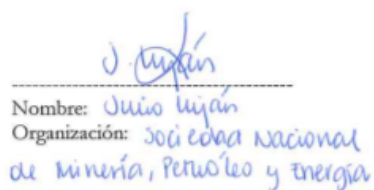 J. Luján
Nombre: Julio Luján
Organización: Sociedad Nacional
de Minería, Petróleo y Energía